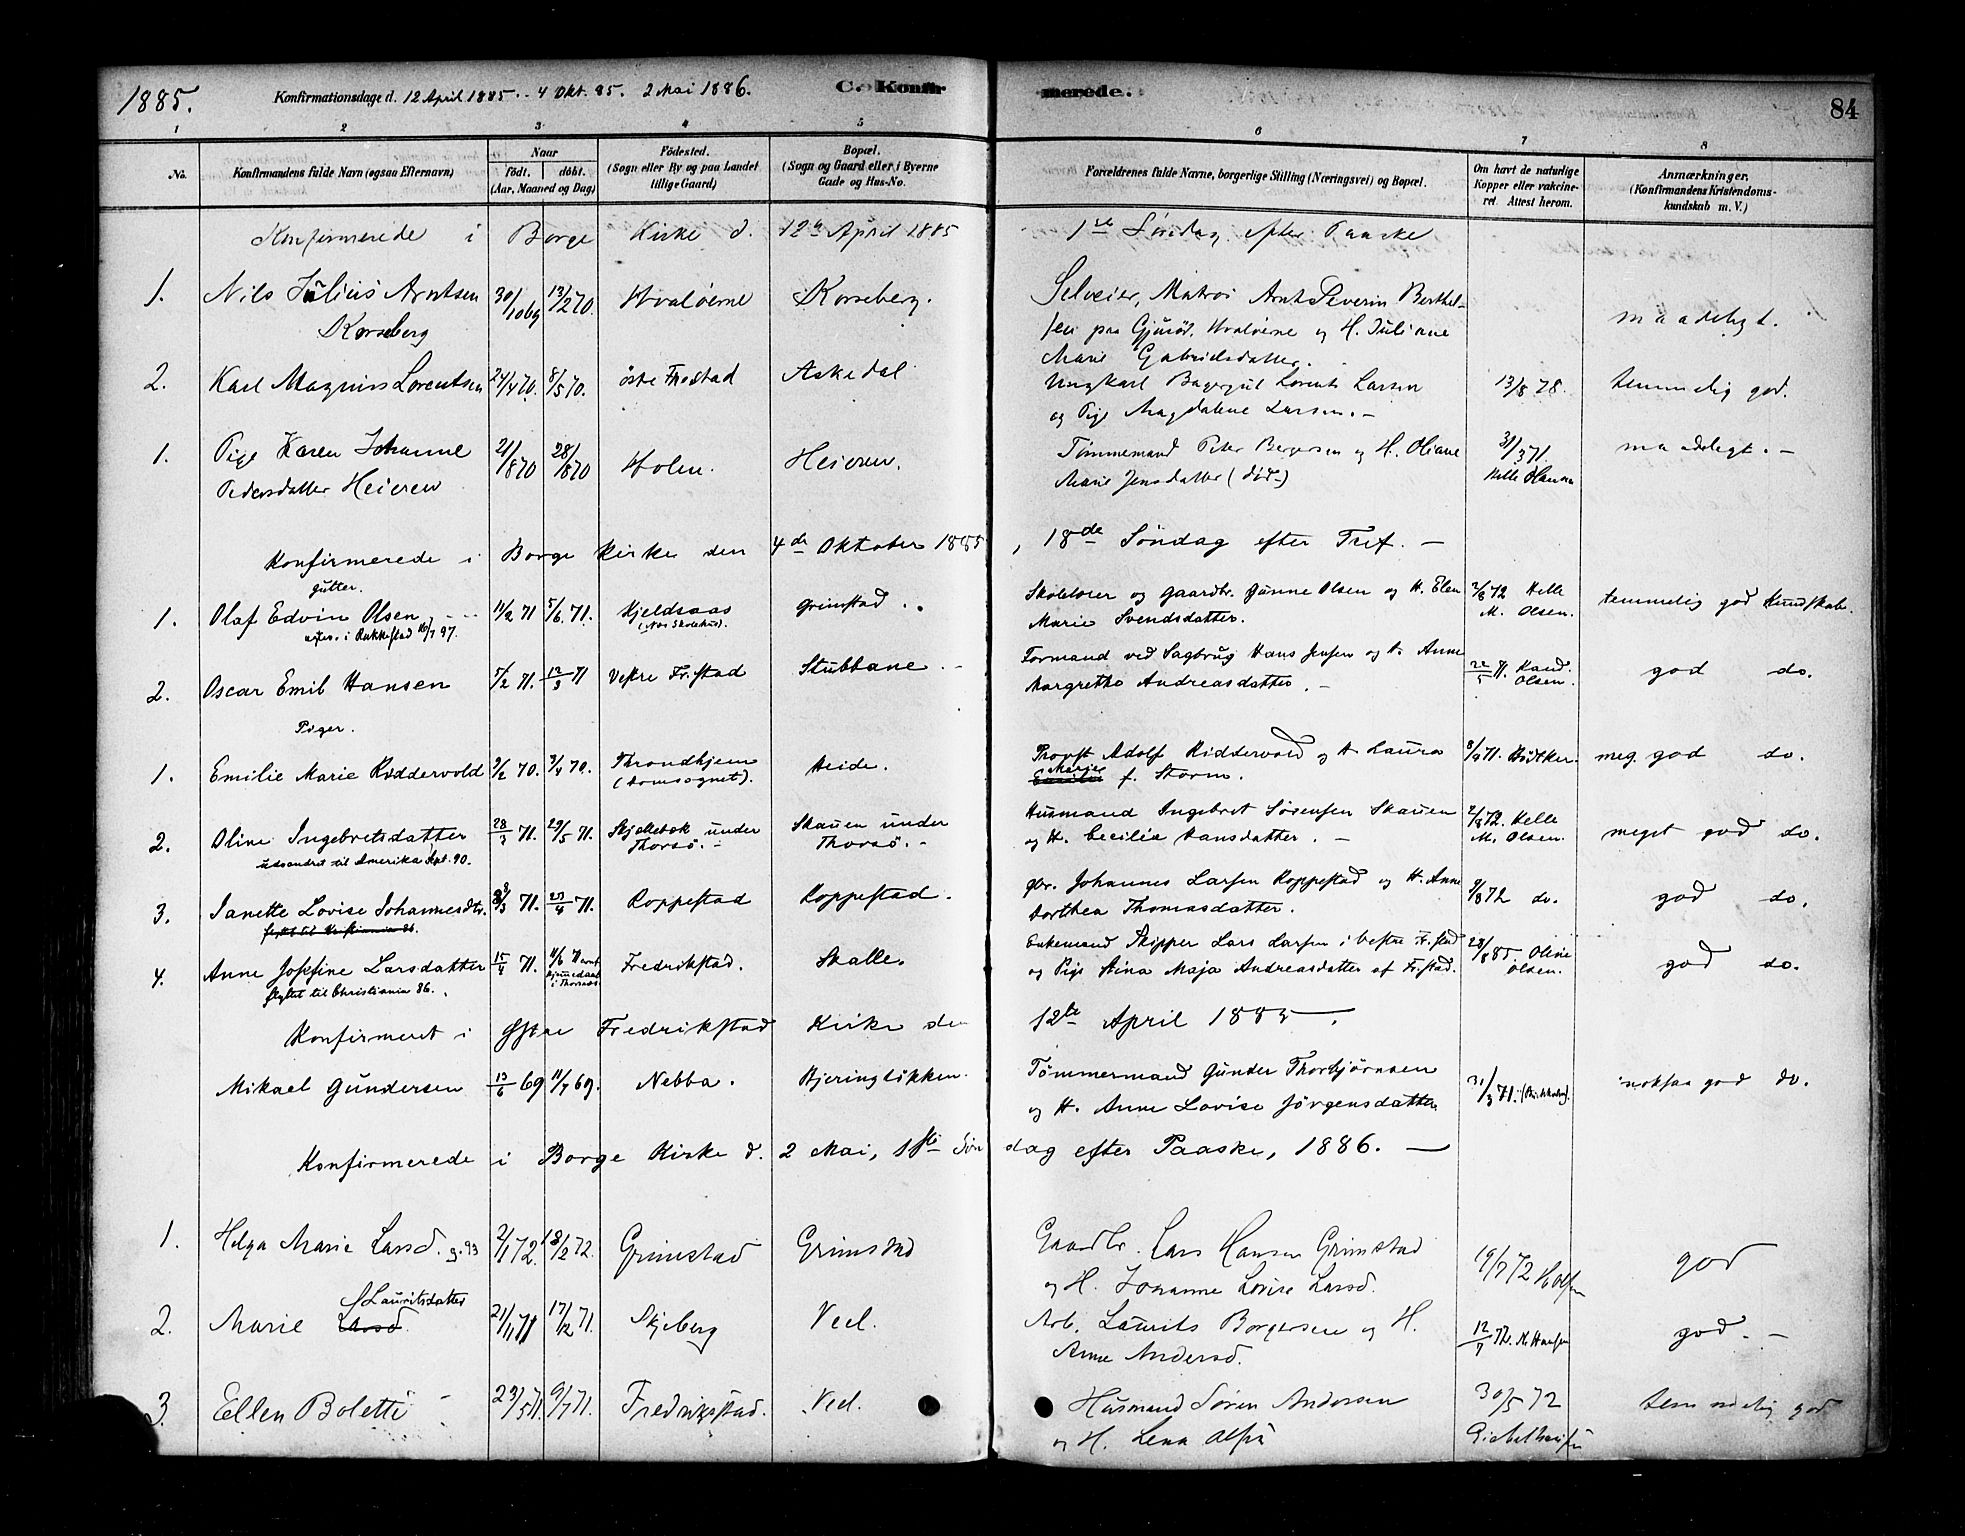 1885. Konfirmationsdage d. 12 April 1885. 4 Okt. 85. 2 Mai 1886. C. Konfirmerede. 84
1 2 3 4 5 6 7 8
No. Konfirmandens fulde Navn (ogsaa Efternavn) Naar født. døbt. (Aar, Maaned og Dag) Fødested. (Sogn eller By og paa Landet tillige Gaard) Bopæl. (Sogn og Gaard eller i Byerne Gade og Hus-No. Forældrenes fulde Navne, borgerlige Stilling (Næringsvei) og Bopæl. Om havt de naturlige Kopper eller vakcineret. Attest herom. Anmærkninger. (Konfirmandens Kristendomskundskab m. V.)
Konfirmerede i Borge Kirke d. 12te April 1885 1ste Søndag efter Paaske
1. Nils Julius Arntsen 30/10 69 13/2 70. Hvaløerne Korseberg. Selveier, Matros Arnt Severin Berthel-
Korseberg sen paa Gjurød, Hvaløerne og H. Juliane maadeligt.
Marie Gabrielsdatter.
2. Karl Magnus Lorentsen 24/4 70. 8/5 70. østre Frestad Askedal Ungkarl Lorents Larsen 13/8 78. temmelig god.
og Pige Magdalene Larsen. -
1. Pige Karen Johanne 21/8 70 28/8 70 Holm. Heieren. Tømmermand Peter Bergersen og H. Oliane 31/3 71. maadeligt. -
Pedersdatter Heieren Marie Jensdatter (død -) Helle
Konfirmerede i Borge Kirke den 4de Oktober 1885, 18de Søndag efter Tref. -
gutter.
1. Olaf Edvin Olsen 11/2 71 5/6 71. Kjeldsaas Grimstad. Skolelærer og gaardbr. Gunne Olsen og H. Elen 2/8 72 Helle temmelig god Kundskab.
i Rakkestad 97. Marie Svendsdatter. M. Olsen.
2. Oscar Emil Hansen 5/2 71. 12/3 71 Vestre Fr.stad Stubbane. Formand ved Sagbrug Hans Jensen og H. Anne 22/5 71. Kand. god do.
Margrethe Andreasdatter. - Olsen.
Piger.
1. Emilie Marie Riddervold 2/2 70. 3/4 70. Throndhjem Heide. Provst Adolf Riddervold og H. Laura 8/9 71. Bødtker. meg. god do.
(Domsognet). Marie f. Storm.
2. Oline Ingebretsdatter 28/3 71. 29/5 71. Skjellebek under Skauen under Husmand Ingebret Sørensen Skauen 2/8 72. Helle meget god do.
udvandret til Amerika Spt. 90. Thorsø. - Thorsø. - og H. Cecilie Hansdatter. - M. Olsen.
3. Janette Lovise Johannesdtr. 71. 23/4 71. Roppestad Roppestad. gbr. Johannes Larsen Roppestad og H. Anne 9/8 72 do. god do.
flyttet til Kristiania 86. Dorthea Thomasdatter.
4. Anne Josefine Larsdatter 15/4 71. Fredrikstad. Skalle. Enkemand Skipper Lars Larsen i Vestre Fr.stad 28/8 85. Oline god do.
flyttet til Christiania 86. og Pige Stina Maja Andreasdatter af Fr.stad. Olsen.
Konfirmeret i Fredrikstad Kirke den 12te April 1885.
Mikael Gundersen 13/6 69 11/7 69. Nebba. Bjeringløkken. Tømmermand Gunder Thorbjørnsen 31/3 71. noksaa god do.
og H. Anne Lovise Jørgensdatter
Konfirmerede i Borge Kirke d. 2 Mai, 1ste Søndag efter Paaske, 1886. -
1. Helga Marie Larsd. g. 93 2/1 72. 18/2 72. Grimstad Grimstad Gaardbr. Lars Hansen Grimstad 19/7 72 god
og H. Johanne Lovise Larsd.
Lauritsdatter
2. Marie Larsd. 21/11 71 17/12 71. Skjeberg Veel. Arb. Laurits Borgersen og H. 12/7 72. M. Hansen god. -
Anne Andersd.
3. Ellen Bolette 23/5 71. 9/7 71. Fredrikstad. Veel. Husmand Søren Andersen 30/5 72 temmelig god
og H. Lena